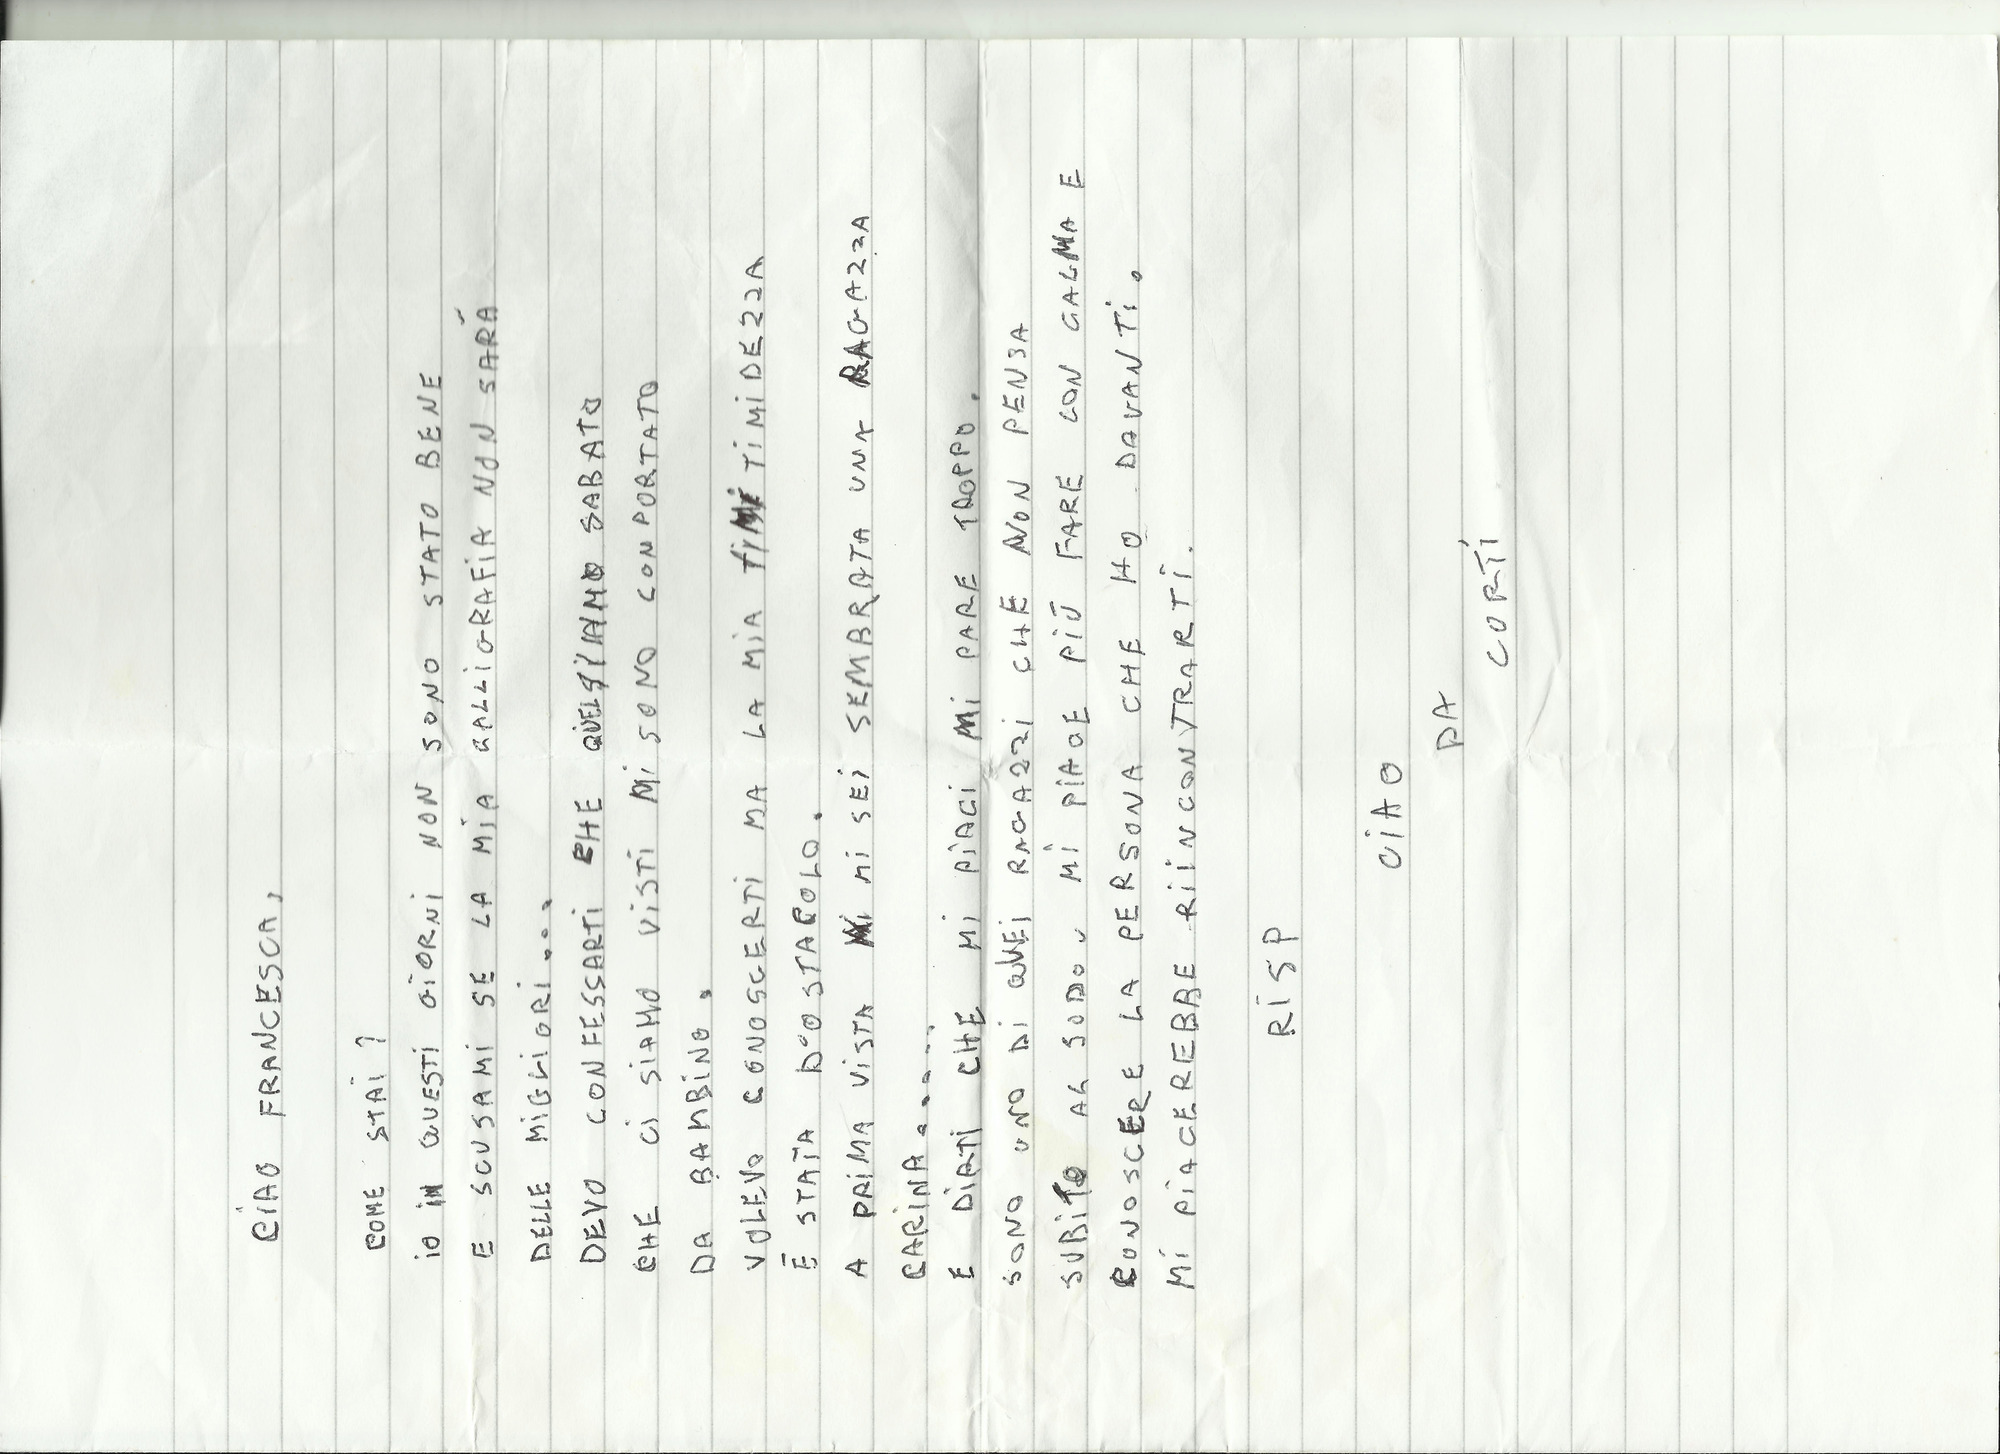 CIAO FRANCESCA,
COME STAI?
IO IN QUESTI GIORNI NON SONO STATO BENE
E SCUSAMI SE LA MIA CALLIGRAFIA NON SARÀ
DELLE MIGLIORI....
DEVO CONFESSARTI CHE SABATO
CHE CI SIAMO VISTI MI SONO CONPORTATO
DA BAMBINO.
VOLEVO CONOSCERTI MA LA MIA TIMIDEZZA
È STATA D'OSTACOLO.
A PRIMA VISTA MI SEI SEMBRATA UNA RAGAZZA
CARINA.....
E DIRTI CHE MI PIACI MI PARE TROPPO.
SONO UNO DI QUEI RAGAZZI CHE NON PENSA
SUBITO AL SODO, MI PIACE PIÙ FARE CON CALMA E
CONOSCERE LA PERSONA CHE HO DAVANTI.
MI PIACEREBBE RIINCONTRARTI.
RISP
CIAO
DA
CORTI